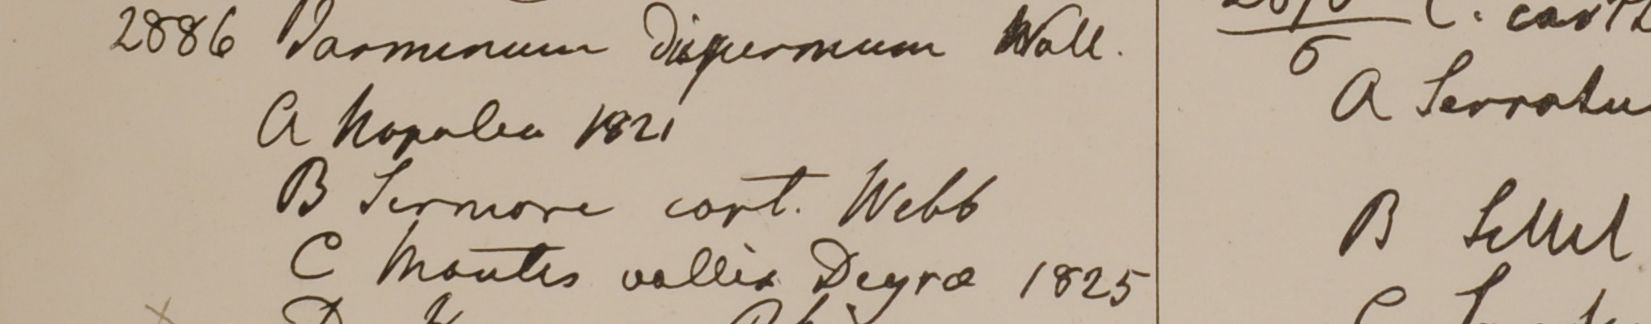 2886 Jasminum dispermum Wall.
A Napalia 1821
B Sirmore capt. Webb
C Montes vallis Deyræ 1825
C.
6
A Serratu
B
C